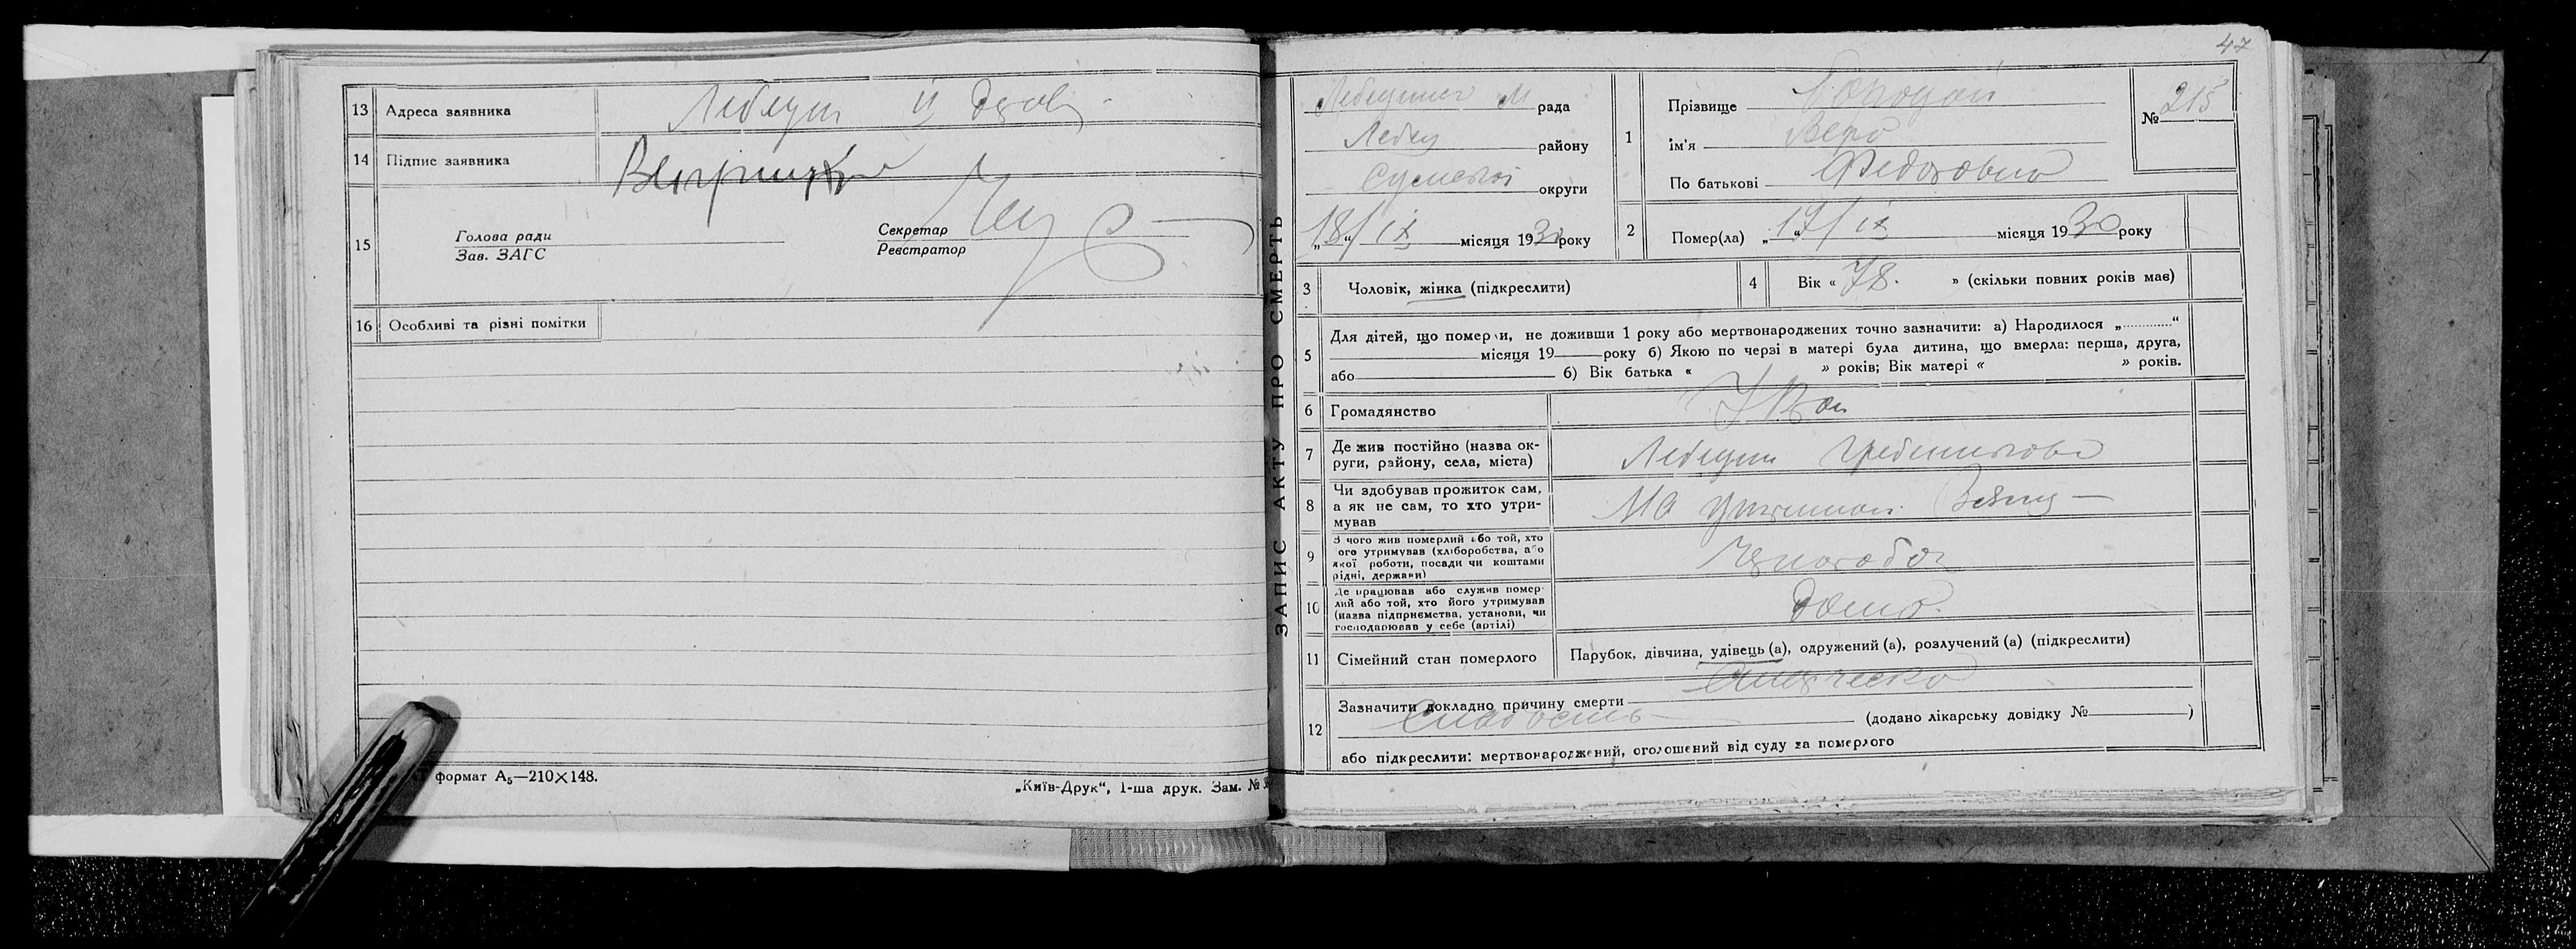 13 Адреса заявника Лебедин
14 Підпис заявника
15 Голова ради
Зав. ЗАГС
Секретар
Реєстратор
16 Особливі та різні помітки
формат А₅—210×148.
„Київ-Друк“, 1-ша друк. Зам. №
ЗАПИС АКТУ ПРО СМЕРТЬ
47
рада
району
Сумської округи
„18“/IX місяця 1930 року
1 Прізвище
ім'я Вера
По батькові Федоровна
№ 215
2 Помер(ла) „17“/IX місяця 1930 року
3 Чоловік, жінка (підкреслити)
4 Вік « 78. » (скільки повних років має)
5 Для дітей, що померли, не доживши 1 року або мертвонароджених точно зазначити: а) Народилося „............“
місяця 19 року б) Якою по черзі в матері була дитина, що вмерла: перша, друга,
або б) Вік батька « » років; Вік матері « » років.
6 Громадянство
7 Де жив постійно (назва ок-
руги, району, села, міста) Лебедин
8 Чи здобував прожиток сам,
а як не сам, то хто утри-
мував На
9 З чого жив померлий або той, хто
його утримував (хліборобства, або
якої роботи, посади чи коштами
рідні, держави)
10 Де працював або служив помер-
лий або той, хто його утримував
(назва підприємства, установи, чи
господарював у себе (артілі) дома.
11 Сімейний стан померлого Парубок, дівчина, удівець (а), одружений (а), розлучений (а) (підкреслити)
12 Зазначити докладно причину смерти
Слабость (додано лікарську довідку № )
або підкреслити: мертвонароджений, оголошений від суду за померлого